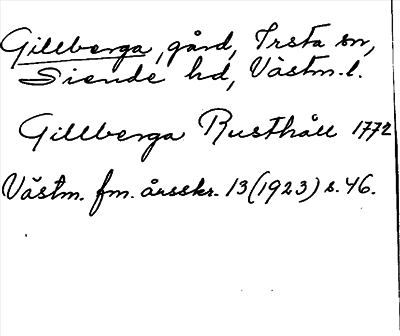 Gillberga, gård, Irsta sn,
Siende hd, Västm. l.
Gillberga Rusthåll 1772
Västm. fm. årsskr. 13 (1923) s. 46.